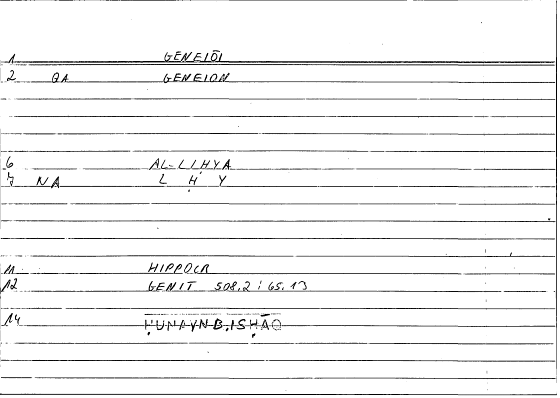 1 GENEIŌI
2 QA GENEION
6 AL-LIḤYA
7 NA L Ḥ Y
11 HIPPOCR
12 GENIT 508.2 : 65.13
14 ḤUNAYN B. ISḤĀQ